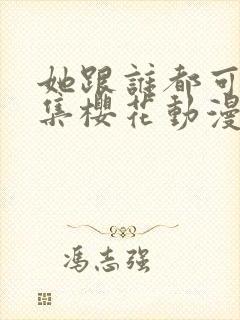 她跟誰都可
集櫻花動漫
馮志强